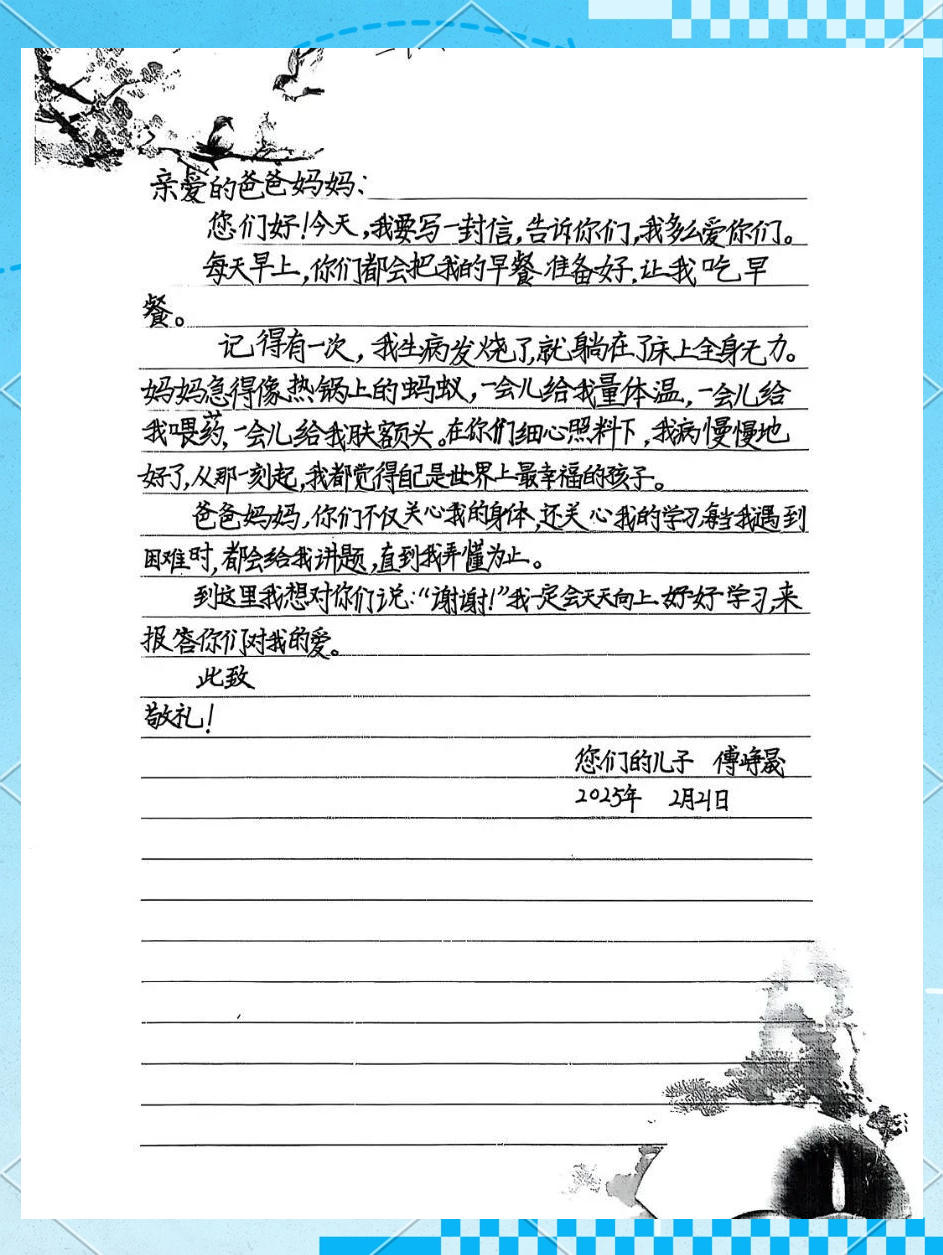 亲爱的爸爸妈妈：
您们好！今天，我要写一封信，告诉你们，我多么爱你们。
每天早上，你们都会把我的早餐准备好，让我吃早
餐。
记得有一次，我生病发烧了，就躺在了床上全身无力。
妈妈急得像热锅上的蚂蚁，一会儿给我量体温，一会儿给
我喂药，一会儿给我肤额头。在你们细心照料下，我病慢慢地
好了，从那一刻起，我都觉得自己是世界上最幸福的孩子。
爸爸妈妈，你们不仅关心我的身体，还关心我的学习，每当我遇到
困难时，都会给我讲题，直到我弄懂为止。
到这里我想对你们说：“谢谢！”我一定会天天向上、好好学习，来
报答你们对我的爱。
此致
敬礼！
您们的儿子 傅峥晟
2025年 2月21日